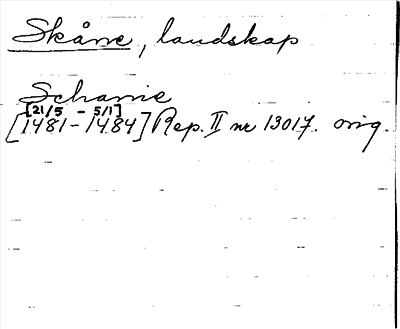 Skåne, landskap
Schanie
[21/5 - 5/1]
[1481-1484] Rep. II nr 13017. orig.